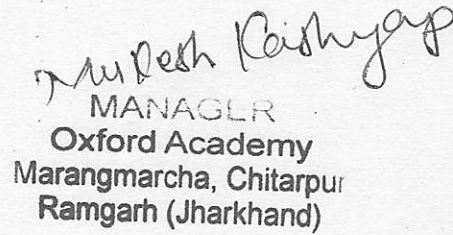 Mukesh Kashyap
MANAGER
Oxford Academy
Marangmarcha, Chitarpur
Ramgarh (Jharkhand)